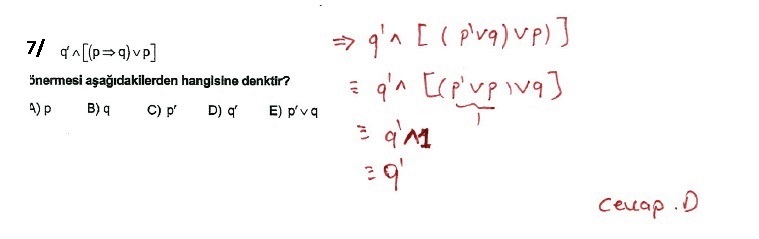 7/ q′∧[(p⇒q)∨p]
önermesi aşağıdakilerden hangisine denktir?
A) p B) q C) p′ D) q′ E) p′∨q
⇒ q'∧ [ ( p'∨q) ∨p) ]
≡ q'∧ [(p'∨p )∨q]
1
≡ q'∧1
≡ q'
Cevap . D